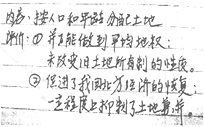 内容:按人口和年龄分配土地
评价:①并不能做到平均地权;
未改变旧土地所有制的性质。
②促进了我国北方经济的恢复;
一定程度上抑制了土地兼并。